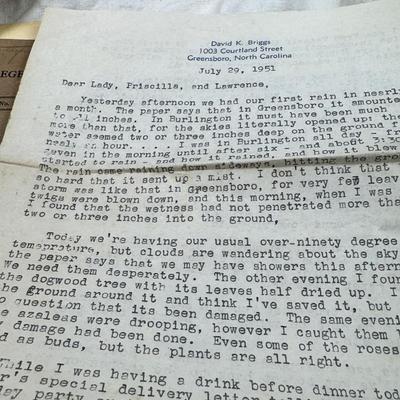 EGE
David K. Briggs
1003 Courtland Street
Greensboro, North Carolina
July 29, 1951
Dear Lady, Priscilla, and Lawrence,
Yesterday afternoon we had our first rain in nearly
a month. The paper says that in Greensboro it amounted
to inches. In Burlington it must have been much
more than that, for the skies literally opened up; the
water seemed two or three inches deep on the ground for
nearly an hour.... I was in Burlington all day - from
seven in the morning until after six - and about
started to rain - and how it rained, and how it blew
The rain came raining down sideways, hitting the ground
so hard that it sent up a mist. I don't think that
storm was like that in Greensboro, for very few leaves
twigs were blown down, and this morning, when I was
I found that the wetness had not penetrated more than
two or three inches into the ground,
Today we're having our usual over-ninety degree
temeprature, but clouds are wandering about the sky
the paper says that we may have showers this afternoon
We need them desperately. The other evening I found
the dogwood tree with its leaves half dried up. I
the ground around it and think I've saved it, but
no question that its been damaged. The same evening
the azaleas were drooping, however I caught them
damage had been done. Even some of the roses
d as buds, but the plants are all right.
While I was having a drink before dinner today
r's special delivery letter
day party